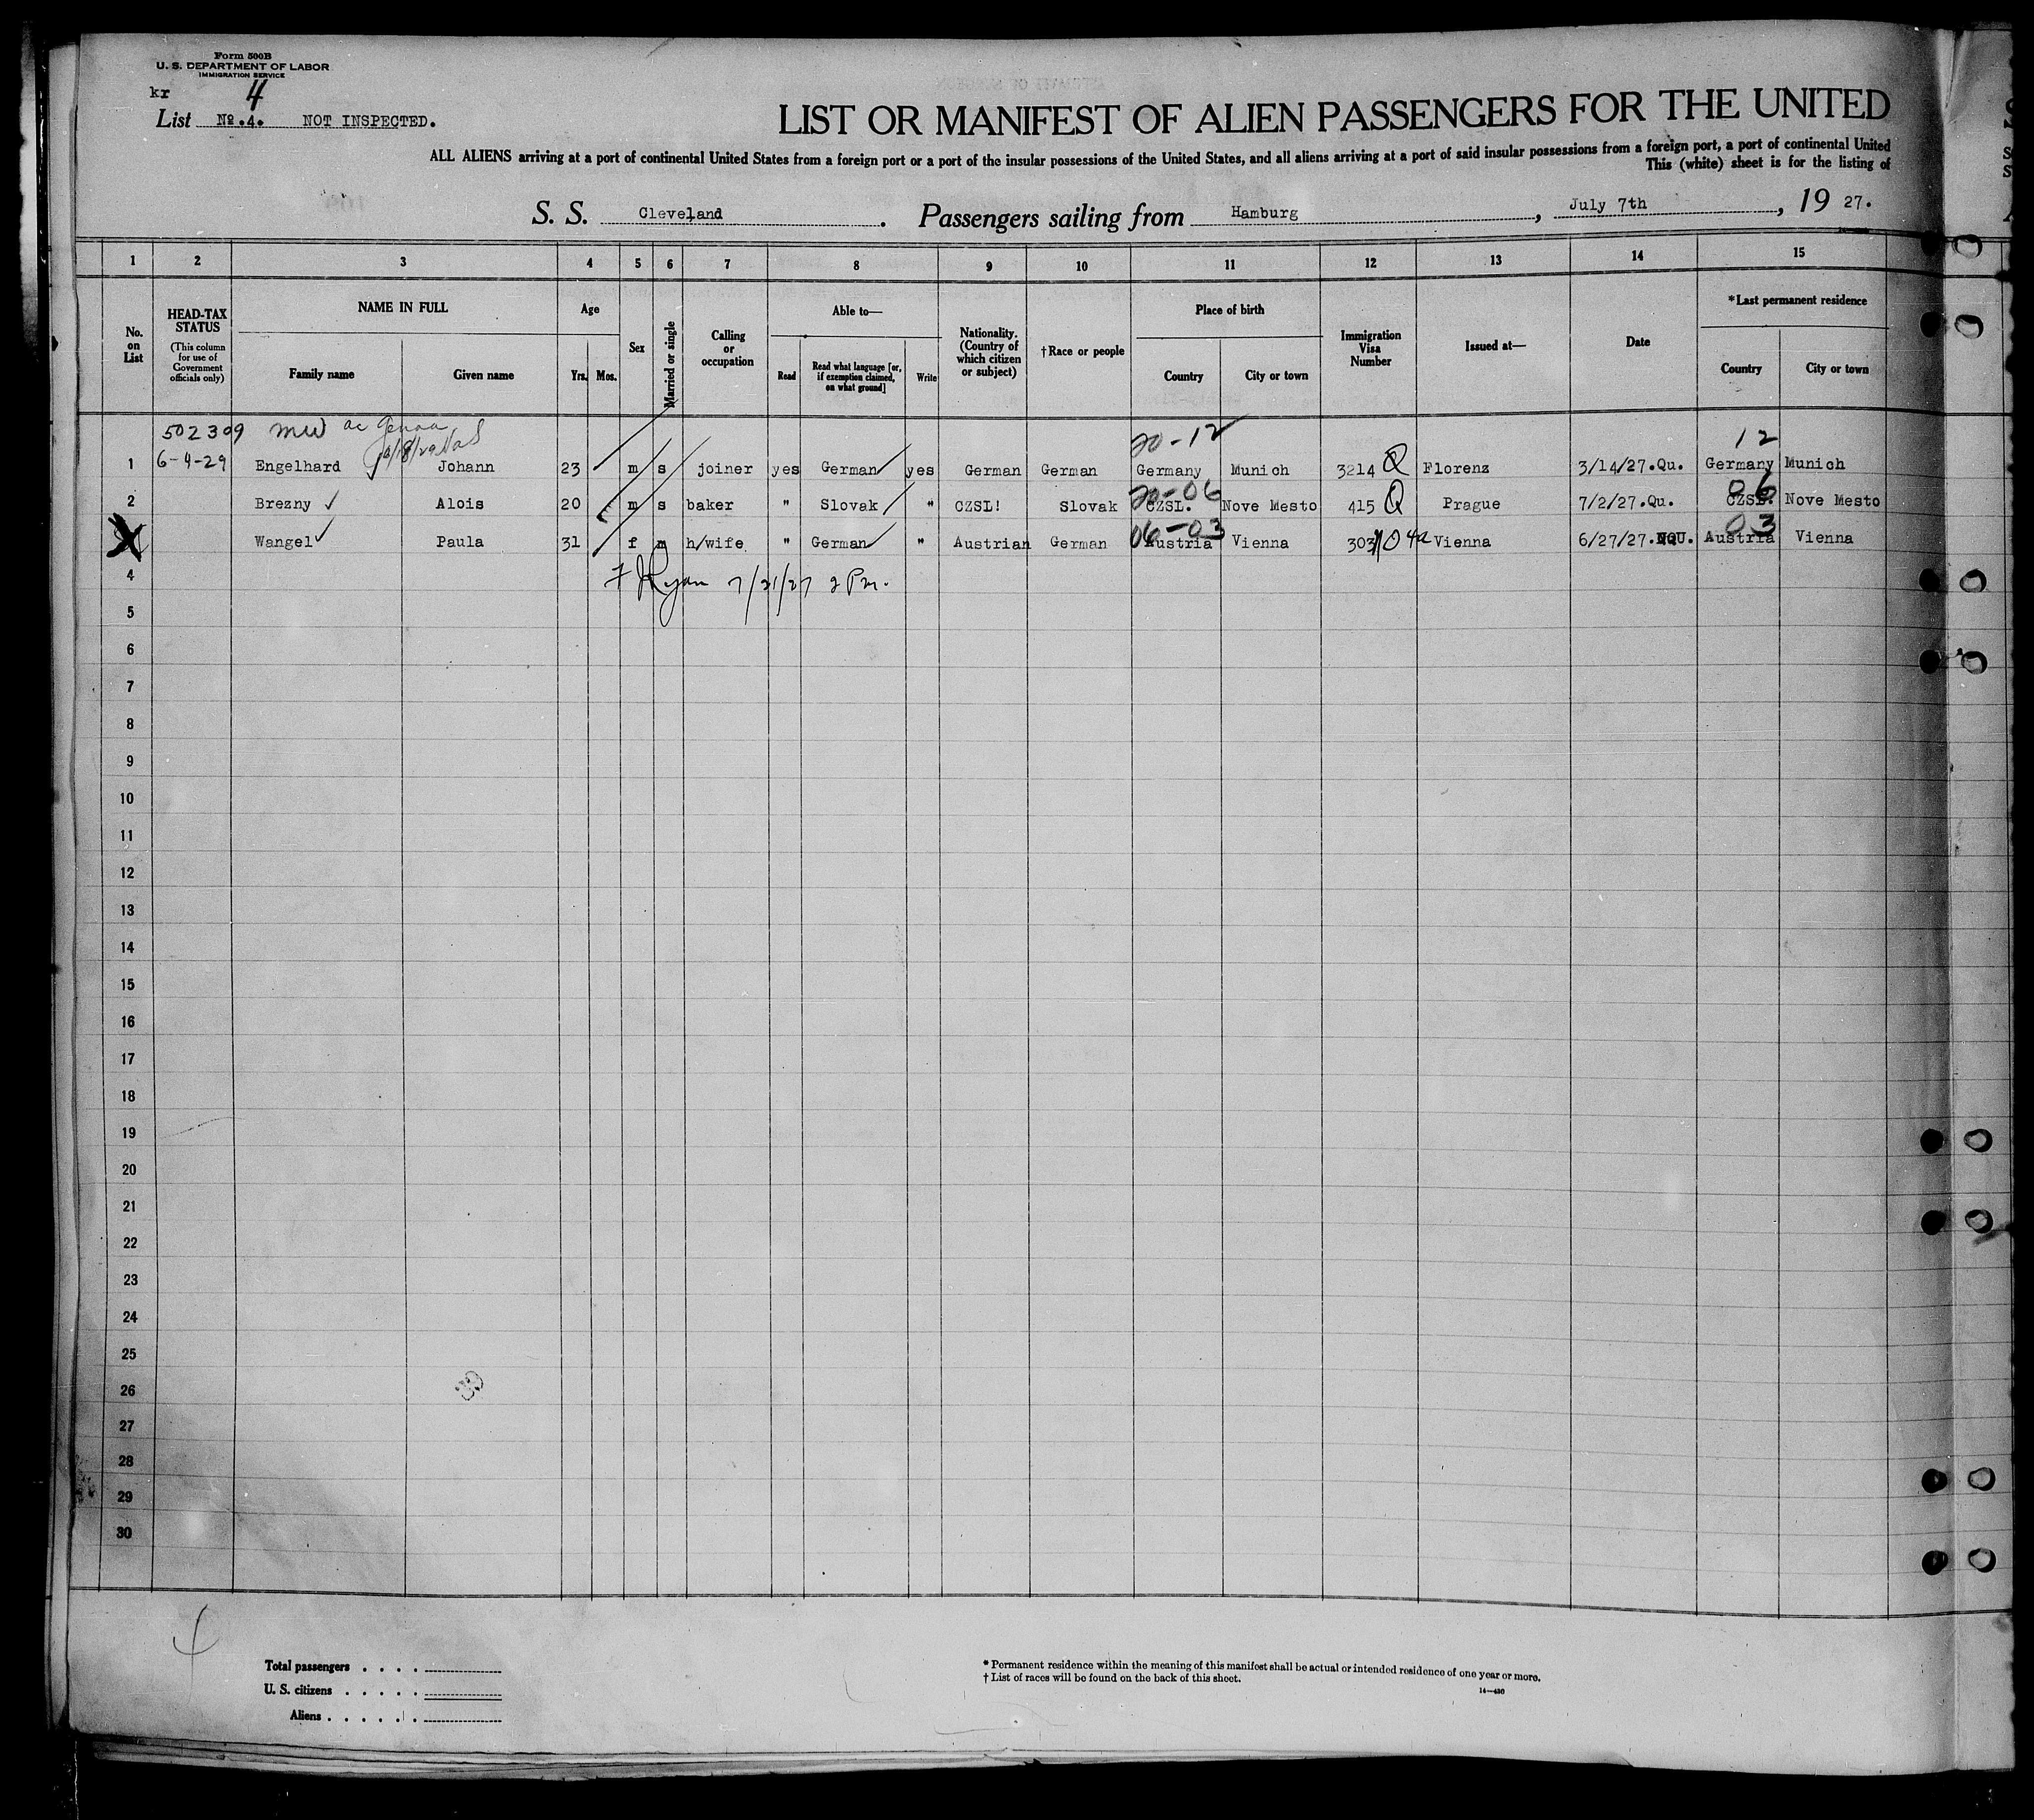 Form 500B
U. S. DEPARTMENT OF LABOR
IMMIGRATION SERVICE
kr 4
List No. 4. NOT INSPECTED.
LIST OR MANIFEST OF ALIEN PASSENGERS FOR THE UNITED
ALL ALIENS arriving at a port of continental United States from a foreign port or a port of the insular possessions of the United States, and all aliens arriving at a port of said insular possessions from a foreign port, a port of continental United
This (white) sheet is for the listing of
S. S. Cleveland. Passengers sailing from Hamburg, July 7th, 19 27.
1 2 3 4 5 6 7 8 9 10 11 12 13 14 15
No. on List HEAD-TAX STATUS (This column for use of Government officials only) NAME IN FULL Family name Given name Age Yrs. Mos. Sex Married or single Calling or occupation Able to— Read Read what language [or, if exemption claimed, on what ground] Write Nationality. (Country of which citizen or subject) †Race or people Place of birth Country City or town Immigration Visa Number Issued at— Date *Last permanent residence Country City or town
502309 20-12 12
1 6-4-29 Engelhard Johann 23 m s joiner yes German yes German German Germany Munich 3214 Q Florenz 3/14/27.Qu. Germany Munich
20-06 06
2 Brezny Alois 20 m s baker " Slovak " CZSL! Slovak CZSL. Nove Mesto 415 Q Prague 7/2/27.Qu. CZSL. Nove Mesto
06-03 03
Wangel Paula 31 f m h/wife " German " Austrian German Austria Vienna 303 Vienna 6/27/27. Austria Vienna
4 Ryan 7/21/27 2 Pm.
5
6
7
8
9
10
11
12
13
14
15
16
17
18
19
20
21
22
23
24
25
26
27
28
29
30
Total passengers . . . .
U. S. citizens . . . . .
Aliens . . . . . .
* Permanent residence within the meaning of this manifest shall be actual or intended residence of one year or more.
† List of races will be found on the back of this sheet.
14—430